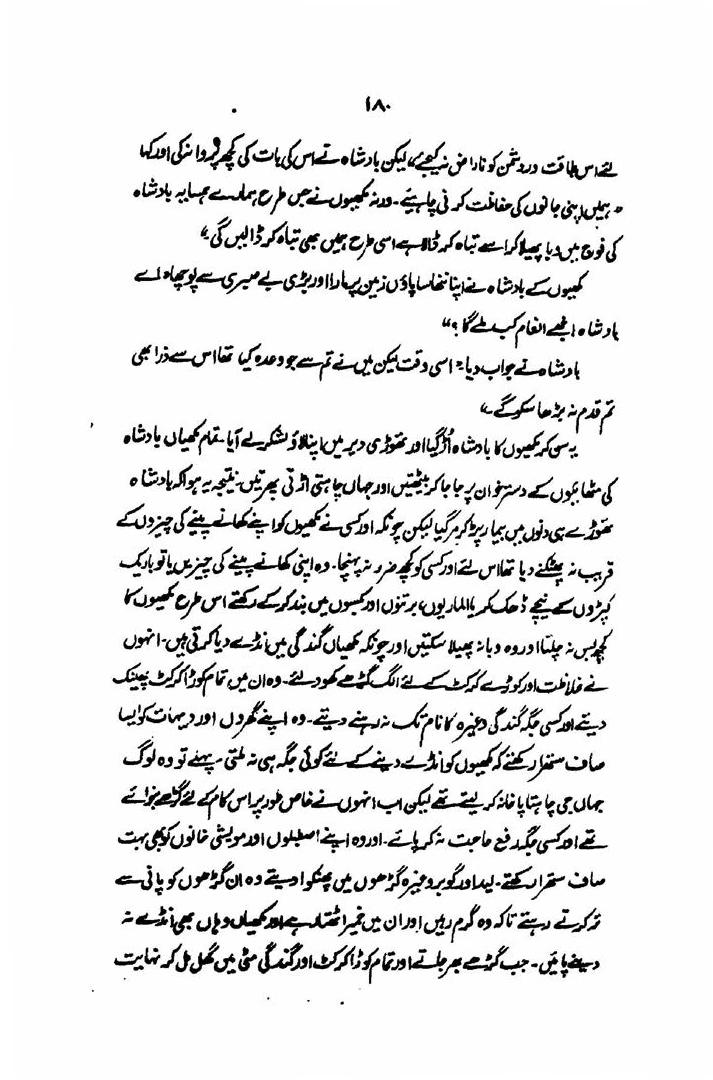 ۱۸۰
لئے اس طاقت ور دشمن کو ناراض نہ کیجئے، لیکن بادشاہ نے اس کی بات کی کچھ پروا نہ کی اور کہا
"ہمیں اپنی جانوں کی حفاظت کرنی چاہیئے۔ ورنہ مکھیوں نے جس طرح ہمارے ہمسایہ بادشاہ
کی فوج میں وبا پھیلا کر اسے تباہ کر ڈالا ہے اسی طرح ہمیں بھی تباہ کر ڈالیں گی۔"
مکھیوں کے بادشاہ نے اپنا ننھا سا پاؤں زمین پر مارا اور بڑی بے صبری سے پوچھا "اے
بادشاہ! مجھے انعام کب ملے گا؟"
بادشاہ نے جواب دیا۔ "اسی وقت لیکن میں نے تم سے جو وعدہ کیا تھا اس سے ذرا بھی
تم قدم نہ بڑھا سکو گے۔"
یہ سن کر مکھیوں کا بادشاہ اُڑ گیا اور تھوڑی دیر میں اپنا لاؤ لشکر لے آیا۔ تمام مکھیاں بادشاہ
کی مٹھائیوں کے دسترخوان پر جا جا کر بیٹھتیں اور جہاں چاہتی اڑتی پھرتیں۔ نتیجہ یہ ہوا کہ بادشاہ
تھوڑے ہی دنوں میں بیمار پڑ کر مر گیا لیکن چونکہ اور کسی نے مکھیوں کو اپنے کھانے پینے کی چیزوں کے
قریب نہ پھٹکنے دیا تھا اس لئے اور کسی کو کچھ ضرر نہ پہنچا۔ وہ اپنی کھانے پینے کی چیزیں یا تو باریک
کپڑوں کے نیچے ڈھک کر یا الماریوں، برتنوں اور بکسوں میں بند کر کے رکھتے اس طرح مکھیوں کا
کچھ بس نہ چلتا اور وہ وبا نہ پھیلا سکتیں اور چونکہ مکھیاں گندگی میں انڈے دیا کرتی ہیں۔ انہوں
نے غلاظت اور کوڑے کرکٹ کے لئے الگ گڑھے کھود لئے۔ وہ ان میں تمام کوڑا کرکٹ پھینک
دیتے اور کسی جگہ گندگی وغیرہ کا نام تک نہ رہنے دیتے۔ وہ اپنے گھروں اور دیہات کو ایسا
صاف ستھرا رکھتے کہ مکھیوں کو انڈے دینے کے لئے کوئی جگہ ہی نہ ملتی۔ پہلے تو وہ لوگ
جہاں جی چاہتا پاخانہ کر لیتے تھے لیکن اب انہوں نے خاص طور پر اس کام کے لئے گڑھے بنوائے
تھے اور کسی جگہ رفع حاجت نہ کر پاتے۔ اور وہ اپنے اصطبلوں اور مویشی خانوں کو بھی بہت
صاف ستھرا رکھتے۔ لید اور گوبر وغیرہ گڑھوں میں پھنکوا دیتے وہ ان گڑھوں کو پانی سے
تر کرتے رہتے تاکہ وہ گرم رہیں اور ان میں خمیر اٹھتا رہے اور مکھیاں وہاں بھی انڈے نہ
دینے پائیں۔ جب گڑھے بھر جاتے اور تمام کوڑا کرکٹ اور گندگی مٹی میں گھل مل کر نہایت